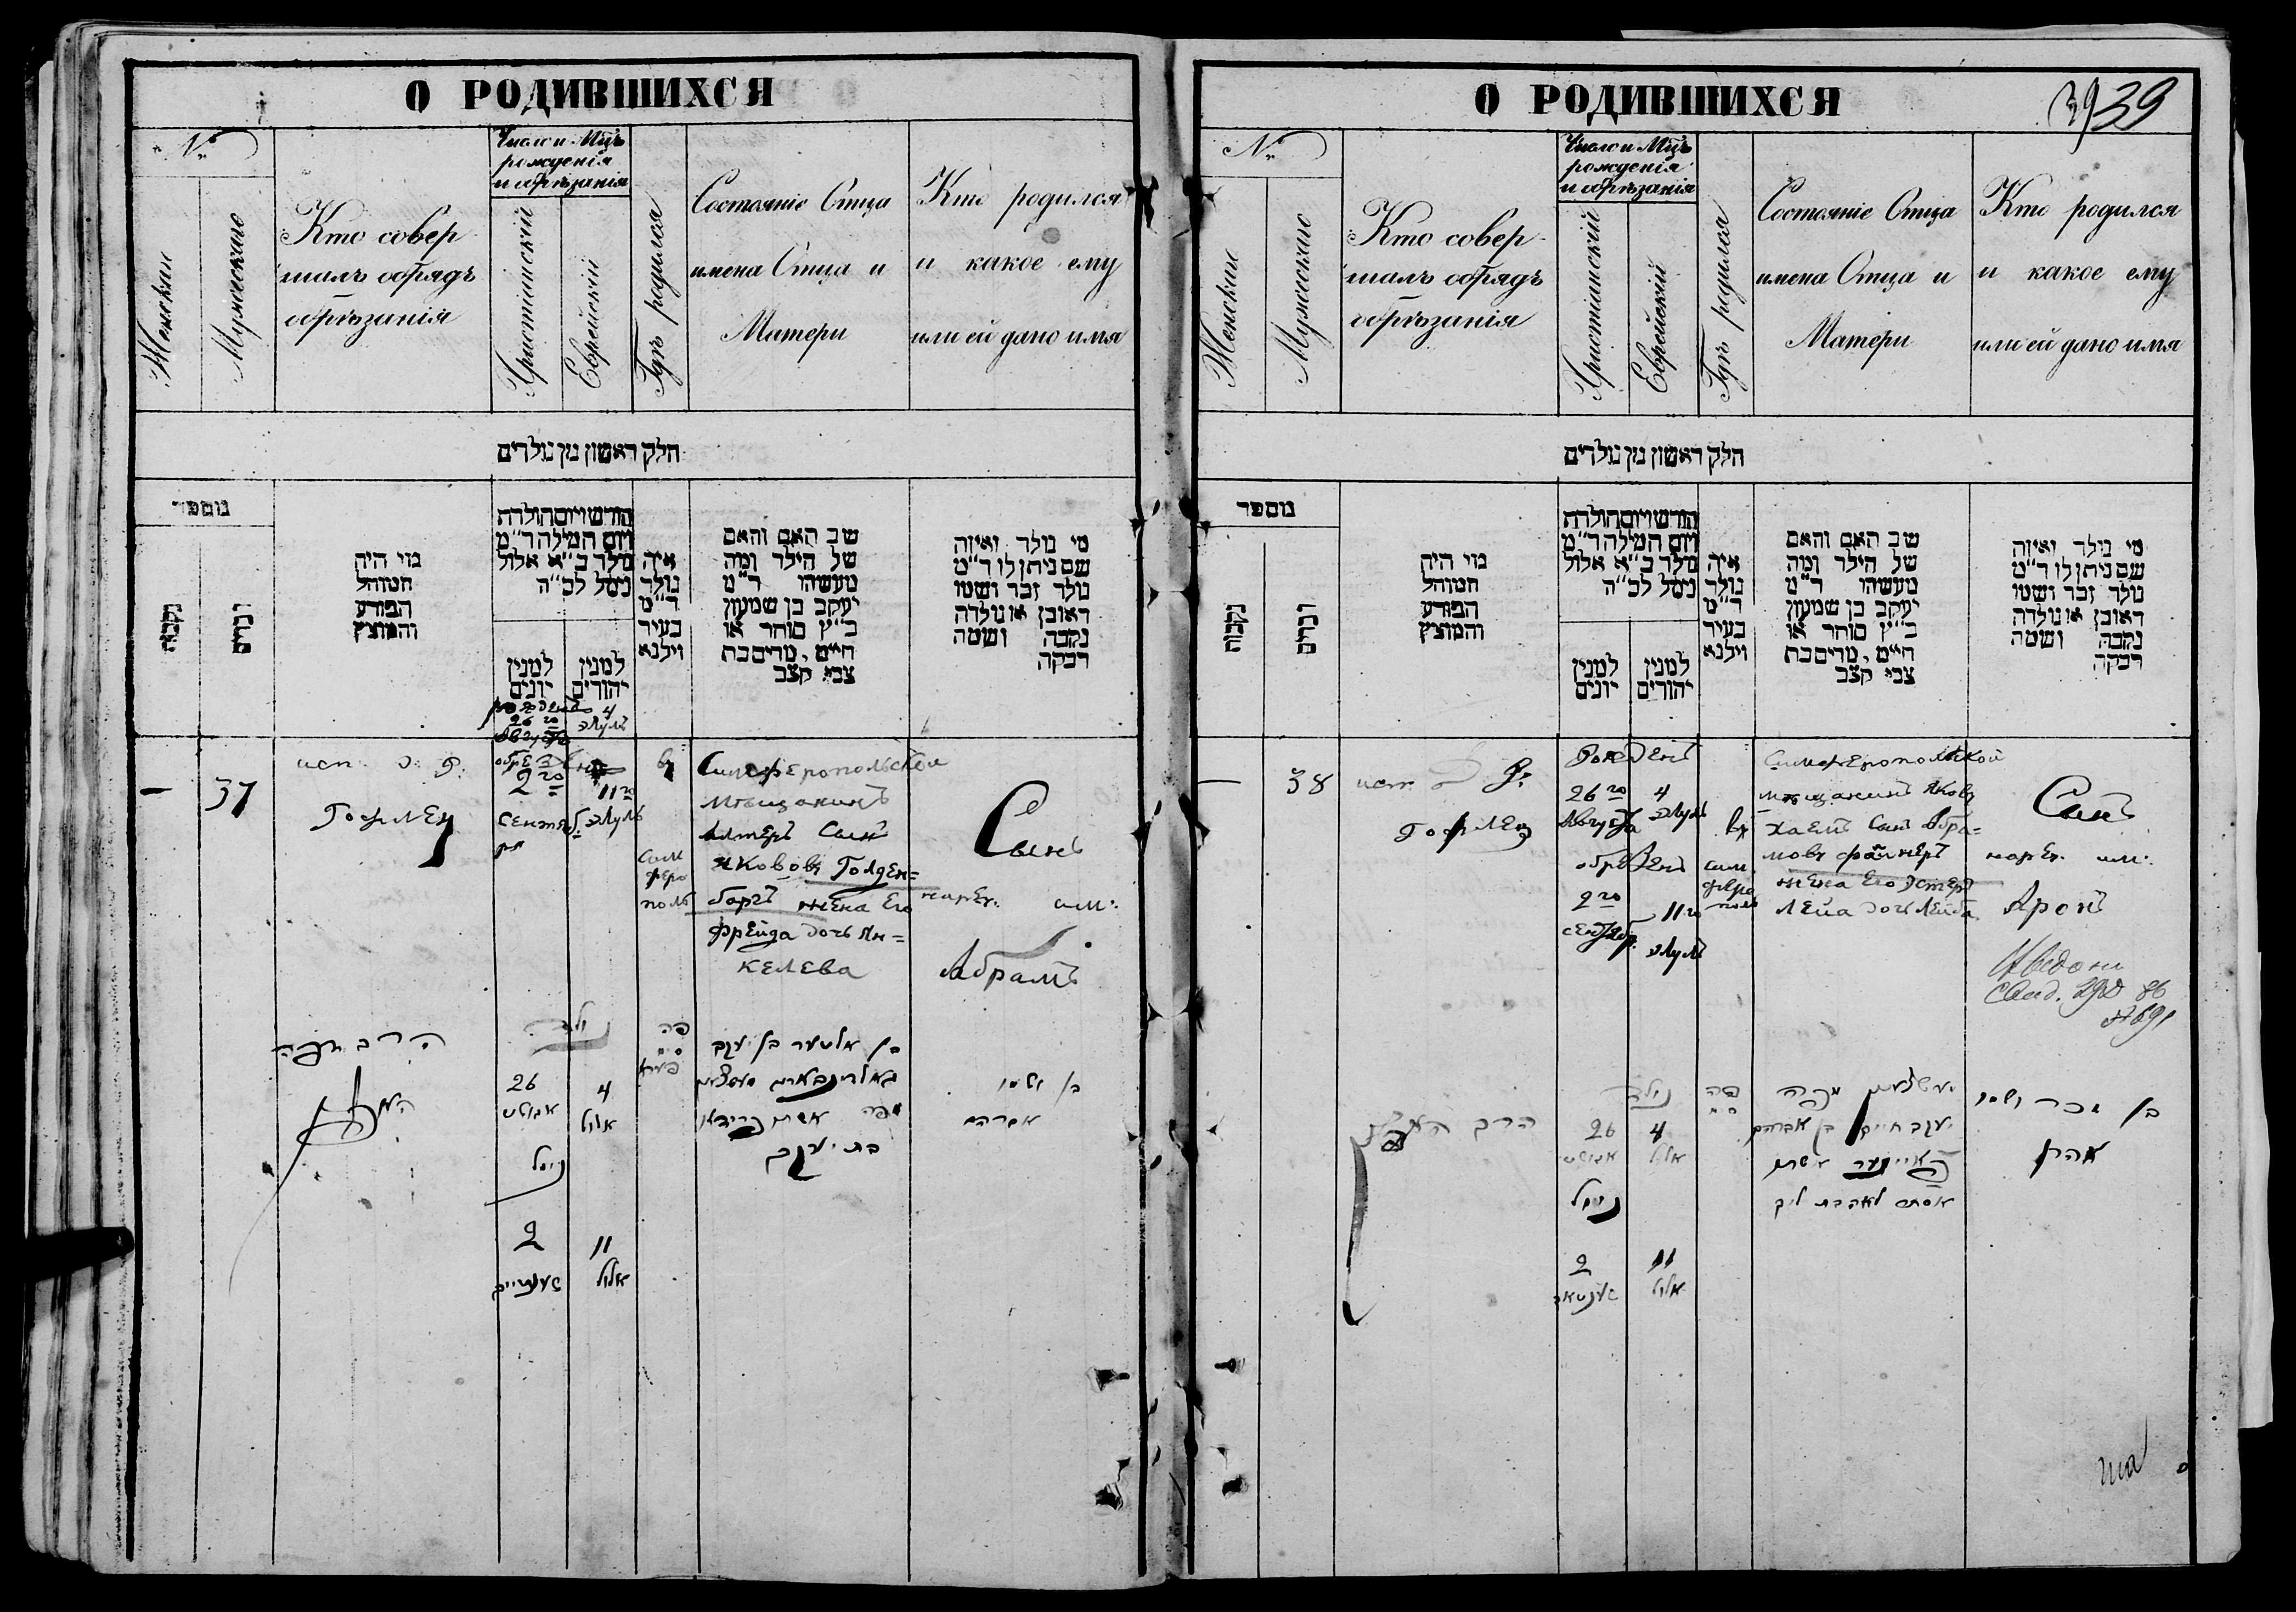 О РОДИВШИХСЯ
№
Женскаго
Мужескаго
Кто совер-
шалъ обрядъ
обрѣзанія
Число и Мѣцъ
рожденія
и обрѣзанія
Христіанскій
Еврейскій
Гдѣ родился
Состояніе Отца
имена Отца и
Матери
Кто родился
и какое ему
или ей дано имя
חלק ראשון מן נולדים
מספר
נקבות
זכרים
מי היה
המוהל
הפורע
והמוצץ
חודש ויום הולדת
ויום המילה ר"מ
נולד ב"א אלול
נימל לב"ה
למנין
יונים
למנין
יהודים
איה
נולד
ר"מ
בעיר
ווילנא
שם האב והאם
של הילד ומה
מעשהו ר"מ
יעקב בן שמעון
כ"ץ סוחר או
חיים, מרים בת
צבי קצב
מי נולד ואיזה
שם ניתן לו ר"מ
נולד זכר ושמו
ראובן או נולדה
נקבה ושמה
רבקה
—
37
исп. д. Р.
Гофлен
26 го
Августа
2 го
Сентяб
ря
4
Элулъ
11 го
Элулъ
въ
Сим
феро
поль
Симферопольской
мѣщанинъ
Алтеръ Сынъ
Яковъ Голден=
баргъ жена Его
Фрейда дочь Ян=
келева
Сынъ
нареч. им:
Абрамъ
הרב
נולד
26
אגוסט
4
אלול
נימל
2
11
אלול
פה
בן אלטער בן יעקב
גאלדינבארג
אשתו פריידא
בת יעקב
בן ושמו
אברהם
О РОДИВШИХСЯ
39
39
№
Женскаго
Мужескаго
Кто совер-
шалъ обрядъ
обрѣзанія
Число и Мѣцъ
рожденія
и обрѣзанія
Христіанскій
Еврейскій
Гдѣ родился
Состояніе Отца
имена Отца и
Матери
Кто родился
и какое ему
или ей дано имя
חלק ראשון מן נולדים
מספר
נקבות
זכרים
מי היה
המוהל
הפורע
והמוצץ
חודש ויום הולדת
ויום המילה ר"מ
נולד ב"א אלול
נימל לב"ה
למנין
יונים
למנין
יהודים
איה
נולד
ר"מ
בעיר
ווילנא
שם האב והאם
של הילד ומה
מעשהו ר"מ
יעקב בן שמעון
כ"ץ סוחר או
חיים, מרים בת
צבי קצב
מי נולד ואיזה
שם ניתן לו ר"מ
נולד זכר ושמו
ראובן או נולדה
נקבה ושמה
רבקה
—
38
исп. д. Р.
Гофлен
Рожденъ
26 го
Августа
4
Элулъ
обрезенъ
2 го
Сентябр.
11 го
Элулъ
въ
сим
феро
поль
Симферопольской
мѣщанинъ Яковъ
Хаемъ Сынъ Абра=
мовъ Файнеръ
жена Его Эстеръ
Лейа дочь Лейба
Сынъ
нареч. им:
Аронъ
הרב
נולד
26
אגוסט
4
אלול
נימל
2
11
אלול
פה
יעקב חיים בן אברהם
פאיינער אשתו
אסתר לאה בת ליב
בן זכר ושמו
אהרן